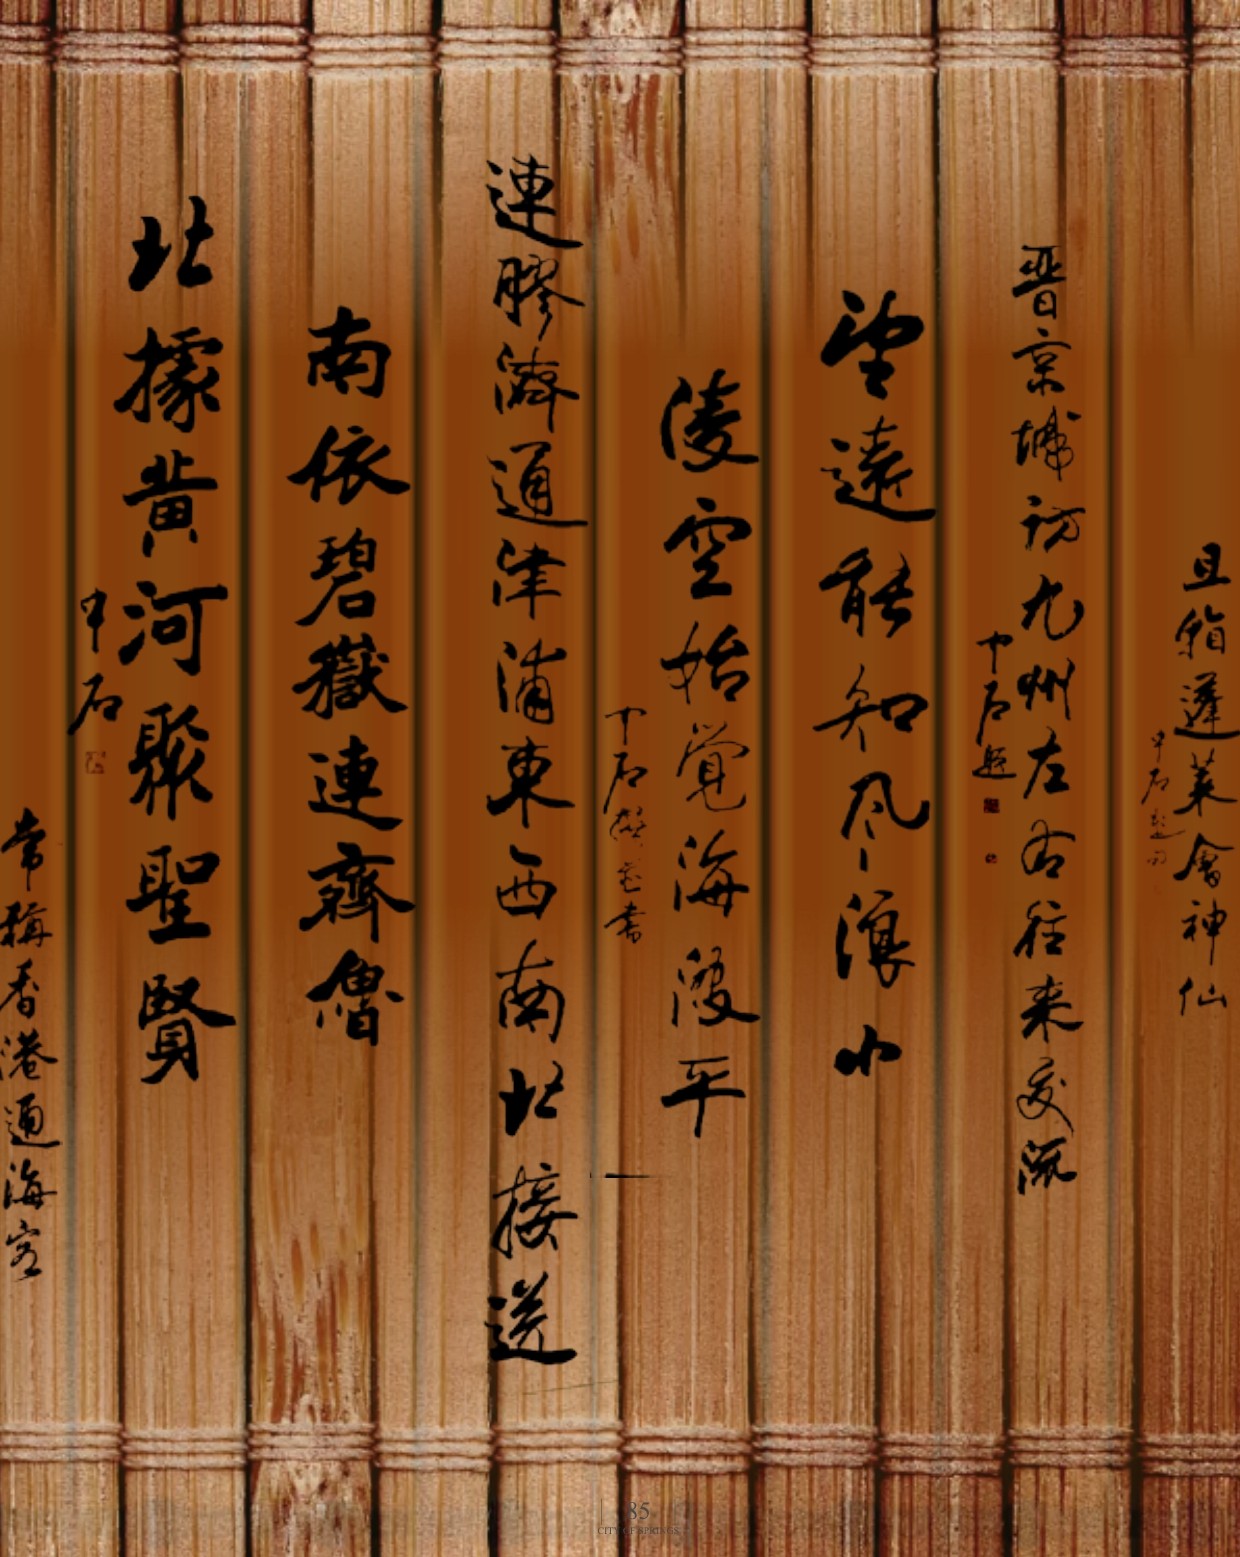 且蓬莱會神仙
中石
晋京城訪九州左右往来交流
中石題
望遠能知风浪小
淩空始覺海波平
中石并書
連膠濟通津浦東西南北接送
南依碧嶽連齊魯
北據黄河聚聖賢
中石
常稱香港通海客
85
CITY OF SPRINGS